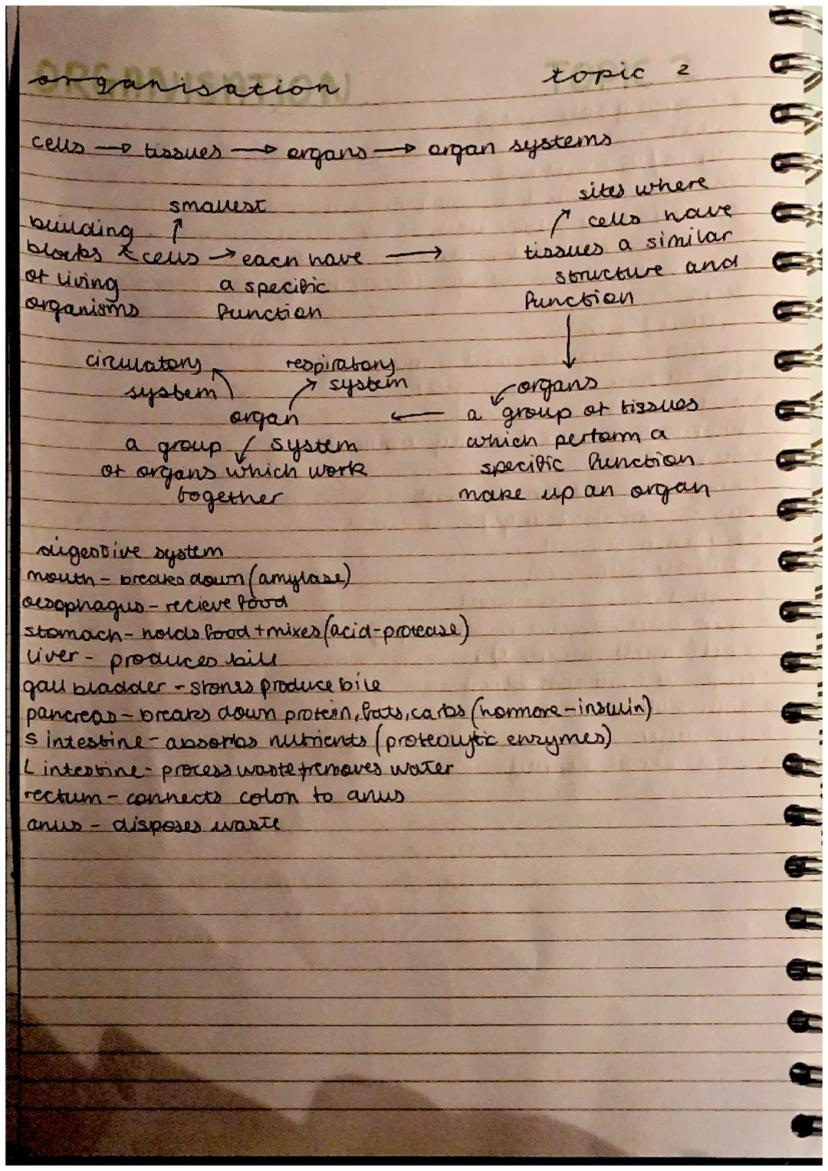 organisation topic 2
cells → tissues → organs → organ systems
smallest
sites where
building
cells have
blocks cells → each have → tissues a similar
of living a specific structure and
organisms function function
circulatory respiratory
system system organs
organ ← a group of tissues
a group system which perform a
of organs which work specific function
together make up an organ
digestive system
mouth - breaks down (amylase)
oesophagus - recieve food
stomach - holds food + mixes (acid-protease)
liver - produces bile
gall bladder - stores produce bile
pancreas - breaks down protein, fats, carbs (hormone-insulin)
S intestine - absorbs nutrients (proteolytic enzymes)
L intestine - process waste + removes water
rectum - connects colon to anus
anus - disposes waste